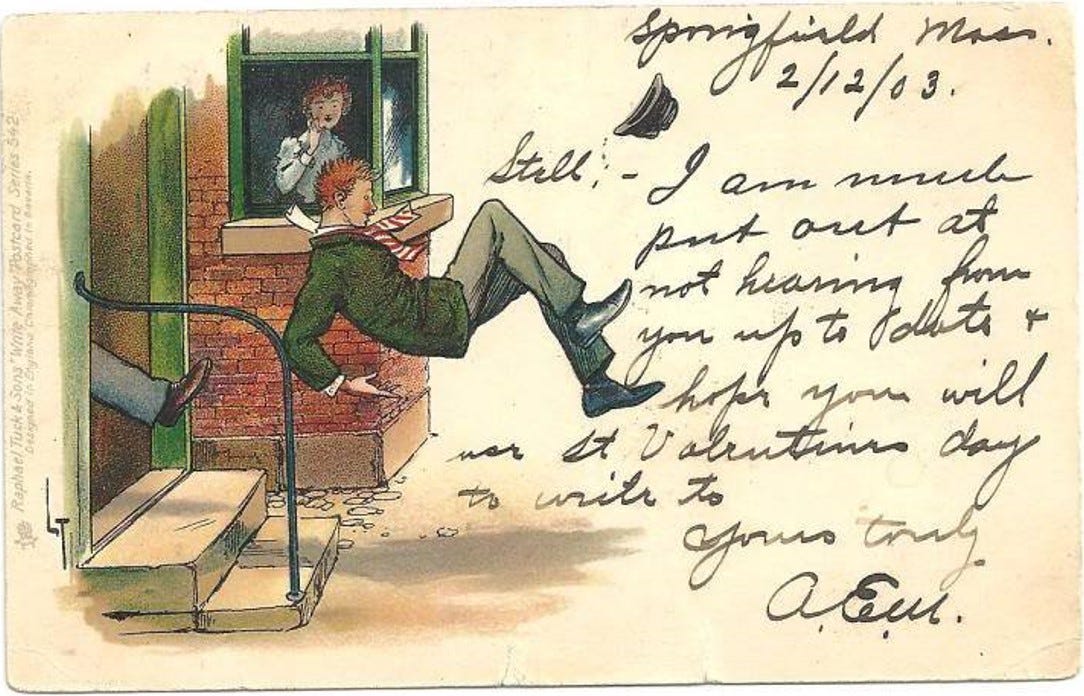 Springfield Mass.
2/12/03.
Still; - I am much
put out at
not hearing from
you up to date +
hope you will
use St Valentines day
to write to
Yours truly
A.E.M.
Raphael Tuck & Sons "Write Away" Postcard Series 542
Designed in England Chromographed in Bavaria.
LT